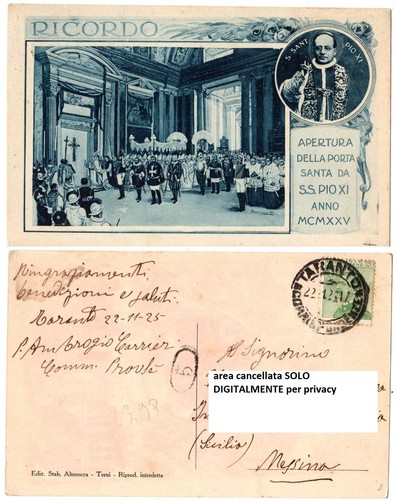 RICORDO
S. SANT. PIO XI
APERTURA
DELLA PORTA
SANTA DA
S.S. PIO XI
ANNO
MCMXXV
Ringraziamenti
benedizioni e saluti.
Taranto 22-11-25
P. Ambrogio Carrieri
Comm. Provle
TARANTO
5
Al Signorino
area cancellata SOLO
DIGITALMENTE per privacy
(Sicilia)
Messina
Ediz. Stab. Alterocca - Terni - Riprod. interdetta